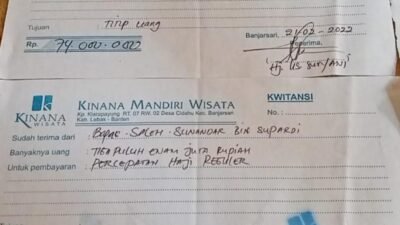 Tujuan : Titip uang
Banjarsari, 21/02-2022
Rp. 74.000.000
Penerima,
KINANA WISATA
KINANA MANDIRI WISATA
Kp. Klarapayung RT. 07 RW. 02 Desa Cidahu Kec. Banjarsari
Kab. Lebak - Banten
KWITANSI
No. :
Sudah terima dari : BAPAK SALEH SUNANDAR BIN SUPARDI
Banyaknya uang : TIGAPULUH ENAM JUTA RUPIAH
Untuk pembayaran : PERCEPATAN HAJI REGULER